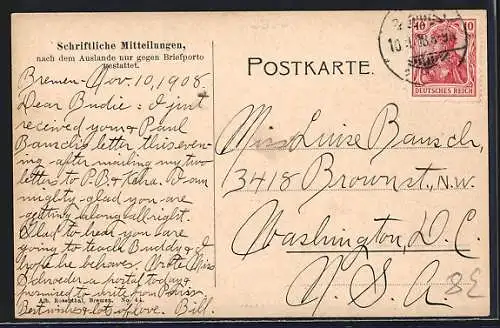 Schriftliche Mitteilungen,
nach dem Auslande nur gegen Briefporto
gestattet.
Bremen - Nov. 10, 1908
Dear Budie: I just
received your & Paul
Bausch's letter this even-
ing after mailing my two
letters to P.B. & Katra. I am
mighty glad you are
getting along all right.
Glad to hear you are
going to teach Buddy & I
hope he behaves. Wrote Miss
Schroeder a postal today &
promised to write you
Best wishes & lot of love. Bill.
Alb. Rosenthal, Bremen. No. 44.
POSTKARTE.
10
10
DEUTSCHES REICH
Miss Luise Bausch,
3418 Brown st., N.W.
Washington, D.C.
U. S. A.
8E